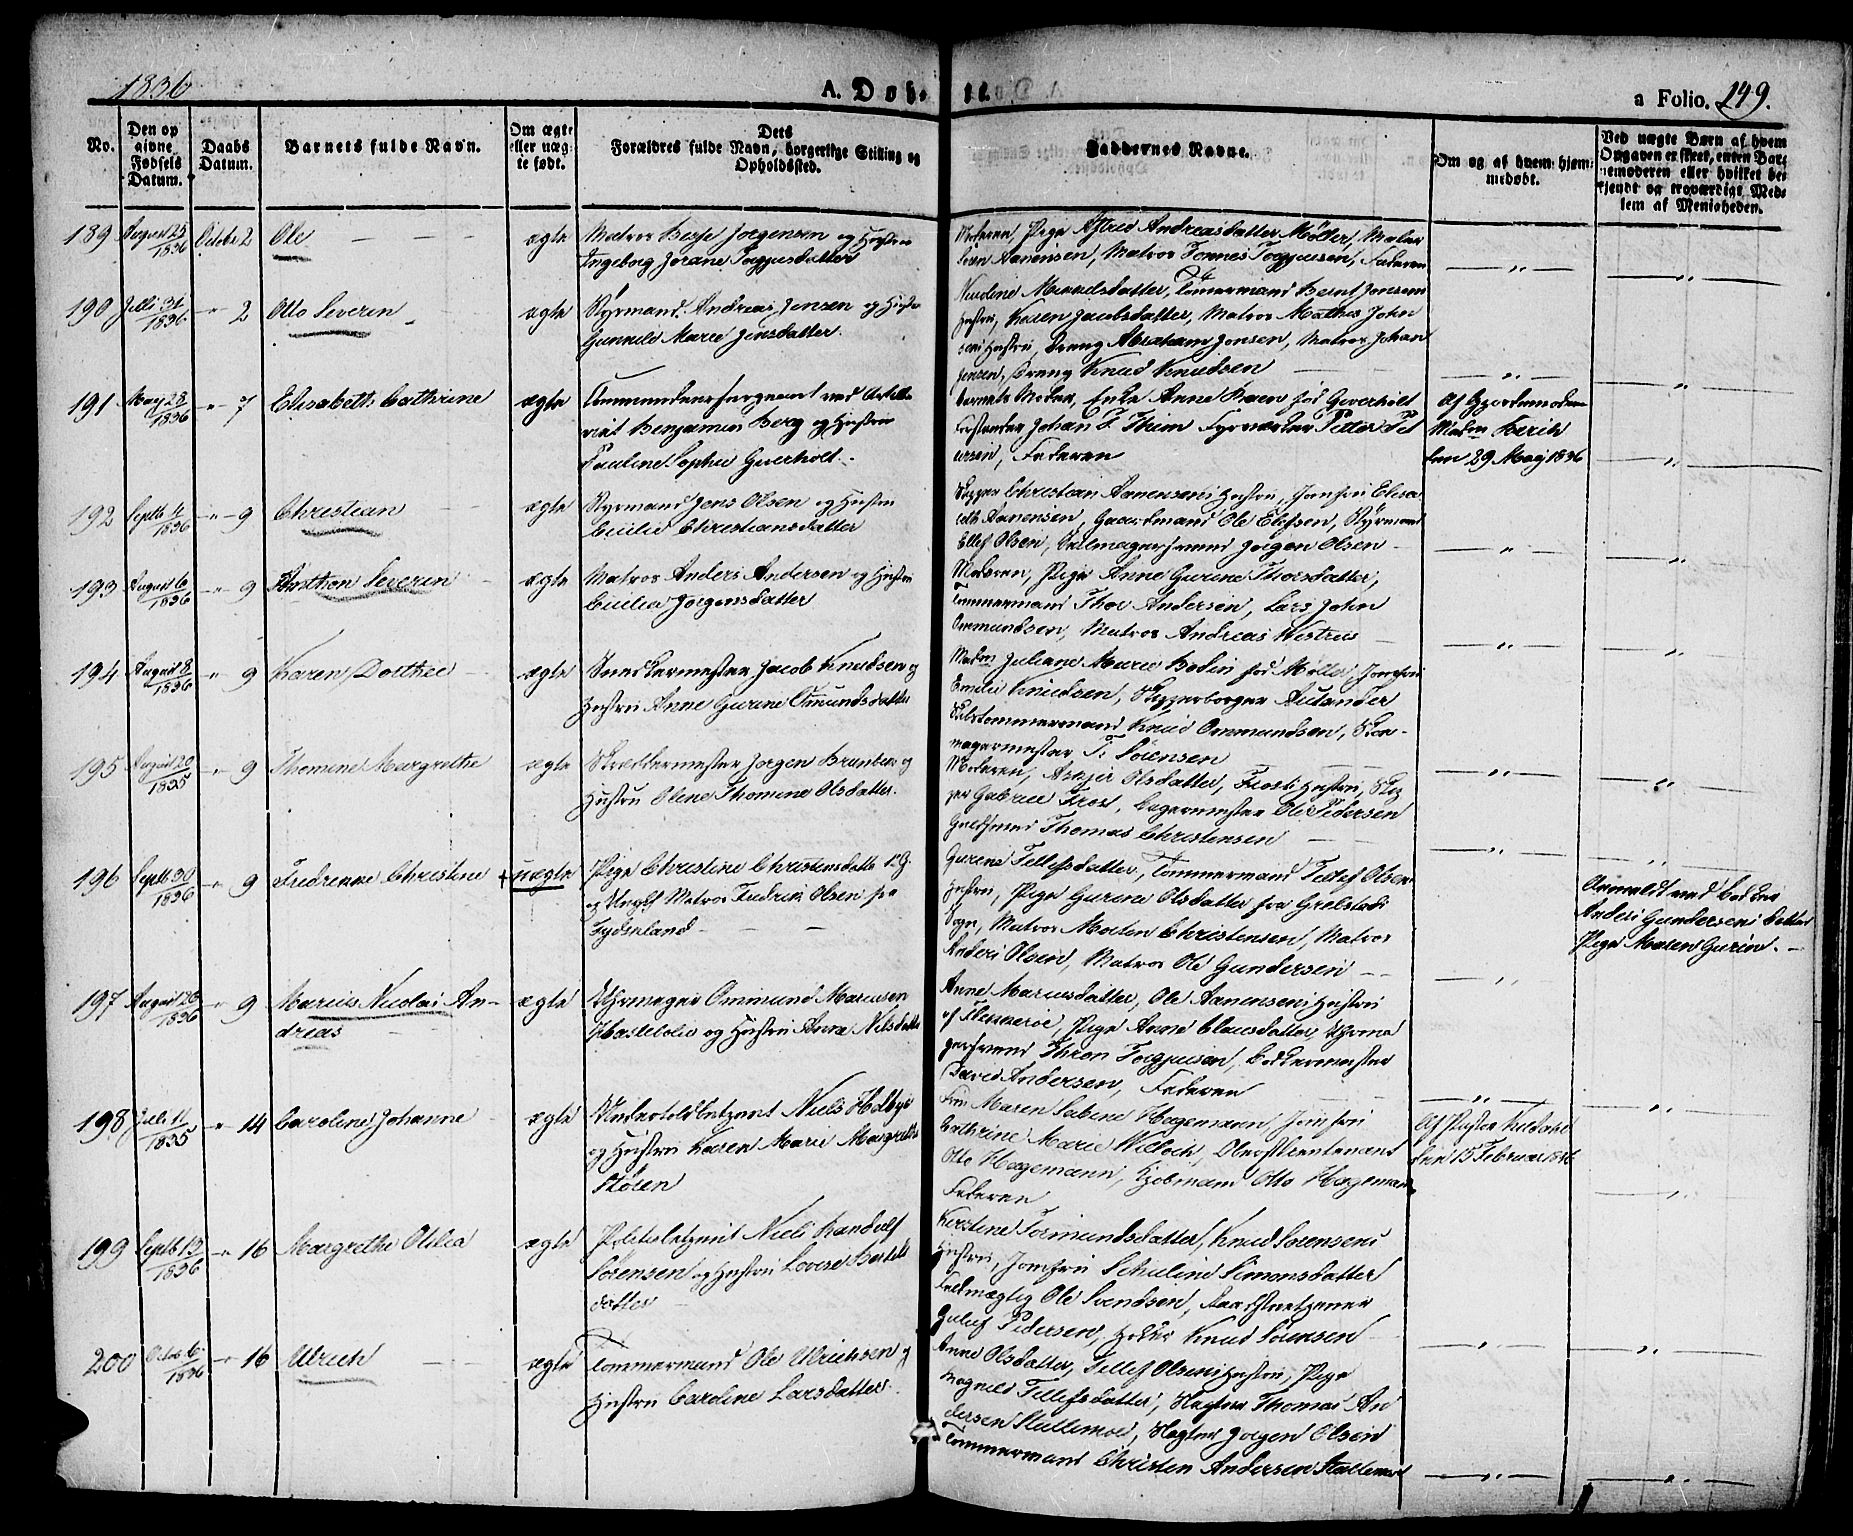 1836
A. Døb- te.
a Folio. 249.
No.
Den op
givne
Fødsels
Datum.
Daabs
Datum.
Barnets fulde Navn.
Om ægte
eller uæg-
te født.
Dets
Forældres fulde Navn, borgerlige Stilling og
Opholdssted.
Faddernes Navne.
Om og af hvem hjem-
medøbt.
Ved uægte Børn af hvem
Opgaven er skeet, enten Bar-
nemoderen eller hvilket be-
kjendt og troværdigt Med-
lem af Menigheden.
189 August 25 1836 October 2 Ole ægte
Matros Jørgensen og Hustru
Ingeborg Torjusdatter
Moderen, Pige Andreasdatter Møller, Matros
Aanensen, Matros Tønnes Torjussen, Faderen
190 Juli 31 1836 " 2 Otto Severin ægte
Styrmand Andreas Jensen og Hustru
Gunnild Marie Jensdatter.
Nicoline Mikkelsdatter, Tømmermand Bernt Jensens
Hustru, Karen Jacobsdatter, Matros Mathis John
sens Hustru, Dreng Abraham Jensen, Matros Johan
Jensen, Dreng Knud Knudsen
191 May 28 1836 " 7 Elisabeth Cathrine ægte
Commandeersergeant ved Artille
riet Benjamin Berg og Hustru
Pauline Sophie Gverholt.
Barnets Moder, Enke Anne fød Gverholt
Johan F. Thim Fyrverker Petter Pet
ersen, Faderen
Af Gjordemoder
Madm
den 29 Maj 1836
192 Septb 4 1836 " 9 Christian ægte
Styrmand Jens Olsen og Hustru
Cecilie Christiansdatter
Skipper Christian Aanensens Hustru, Jomfru Elisa
beth Aanensen, Gaardmand Ole Ellefsen, Styrmand
Ellef Olsen, Seilmagersvend Jørgen Olsen
193 August 6 1836 " 9 Severin ægte
Matros Anders Andersen og Hustru
Cecilia Jørgensdatter
Moderen, Pige Anne Gurine Thorsdatter,
Tømmermand Thor Andersen, Lars John
Ommundsen, Matros Andreas
194 August 8 1836 " 9 Karen Dorthee ægte
Snedkermester Jacob Knudsen og
Hustru Anne Gurine Omundsdatter
Madm Juliane Marie Bodin fød Møller, Jomfru
Emilie Knudsen, Skipperborger
Skibstømmermand Knud Ommundsen, Skoe-
magermester T. Sørensen
195 August 20 1835 " 9 Thomine Margrethe ægte
Skræddermester Jørgen og
Hustru Olene Thomine Olsdatter.
Moderen, Olsdatter, Frosts Hustru, Skip
per Gabriel Frost, Bagermester Ole Pedersen
Guldsmed Thomas Christensen
196 Septb 30 1836 " 9 Fredrenne Christine + uægte
Pige Christine Christensdatter
og Ungk Matros Fredrik Olsen fra
Gurine Tellefsdatter, Tømmermand Tellef Olsens
Hustru, Pige Gurine Olsdatter fra
Sogn, Matros Morten Christensen, Matros
Anders Olsen, Matros Ole Gundersen
Anmeldt ved
Anders Gundersens Datter
Pige Maren Gurine.
197 August 26 1836 " 9 Marius Nicolai An-
dreas ægte
Uhrmager Ommund Mariusen
og Hustru Anne Nilsdatter
Anne Mariusdatter, Ole Aanensens Hustru
af Flekkerøe, Pige Anne Clausdatter, Uhrma
gersvend Thron Torjusen, Bødkermester
David Andersen, Faderen
198 Juli 11 1835 " 14 Caroline Johanne ægte
Undertoldbetjent Niels
og Hustru Karen Marie Margrethe
Støren
Fru Maren Sabine Hagemann, Jomfru
Cathrine Marie Willoch, Oberstlieutenant
Otto Hagemann, Kjøbmand Otto Hagemann
Faderen
Af Præsten
den 15 Februar 1836
199 Septb 13 1836 " 16 Margrethe Otilia ægte
Politiebetjent Niels Randulf
Sørensen og Hustru Lovise Bertels
datter
Kirstine Tormundsdatter, Knud Sørensens
Hustru, Jomfru Simonsdatter
Fuldmægtig Ole Svendsen,
Pedersen, Knud Sørensen
200 Octob 6 1836 " 16 Ulrich ægte
Tømmermand Ole Ulrichsen og
Hustru Caroline Larsdatter.
Anne Olsdatter, Tellef Olsens Hustru, Pige
Magnild Tellefsdatter, Thomas An
dersen Stallemoe, Jørgen Olsen
Tømmermand Christen Andersen Stallemoe